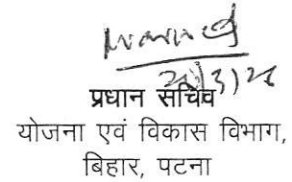 प्रधान सचिव
योजना एवं विकास विभाग,
बिहार, पटना